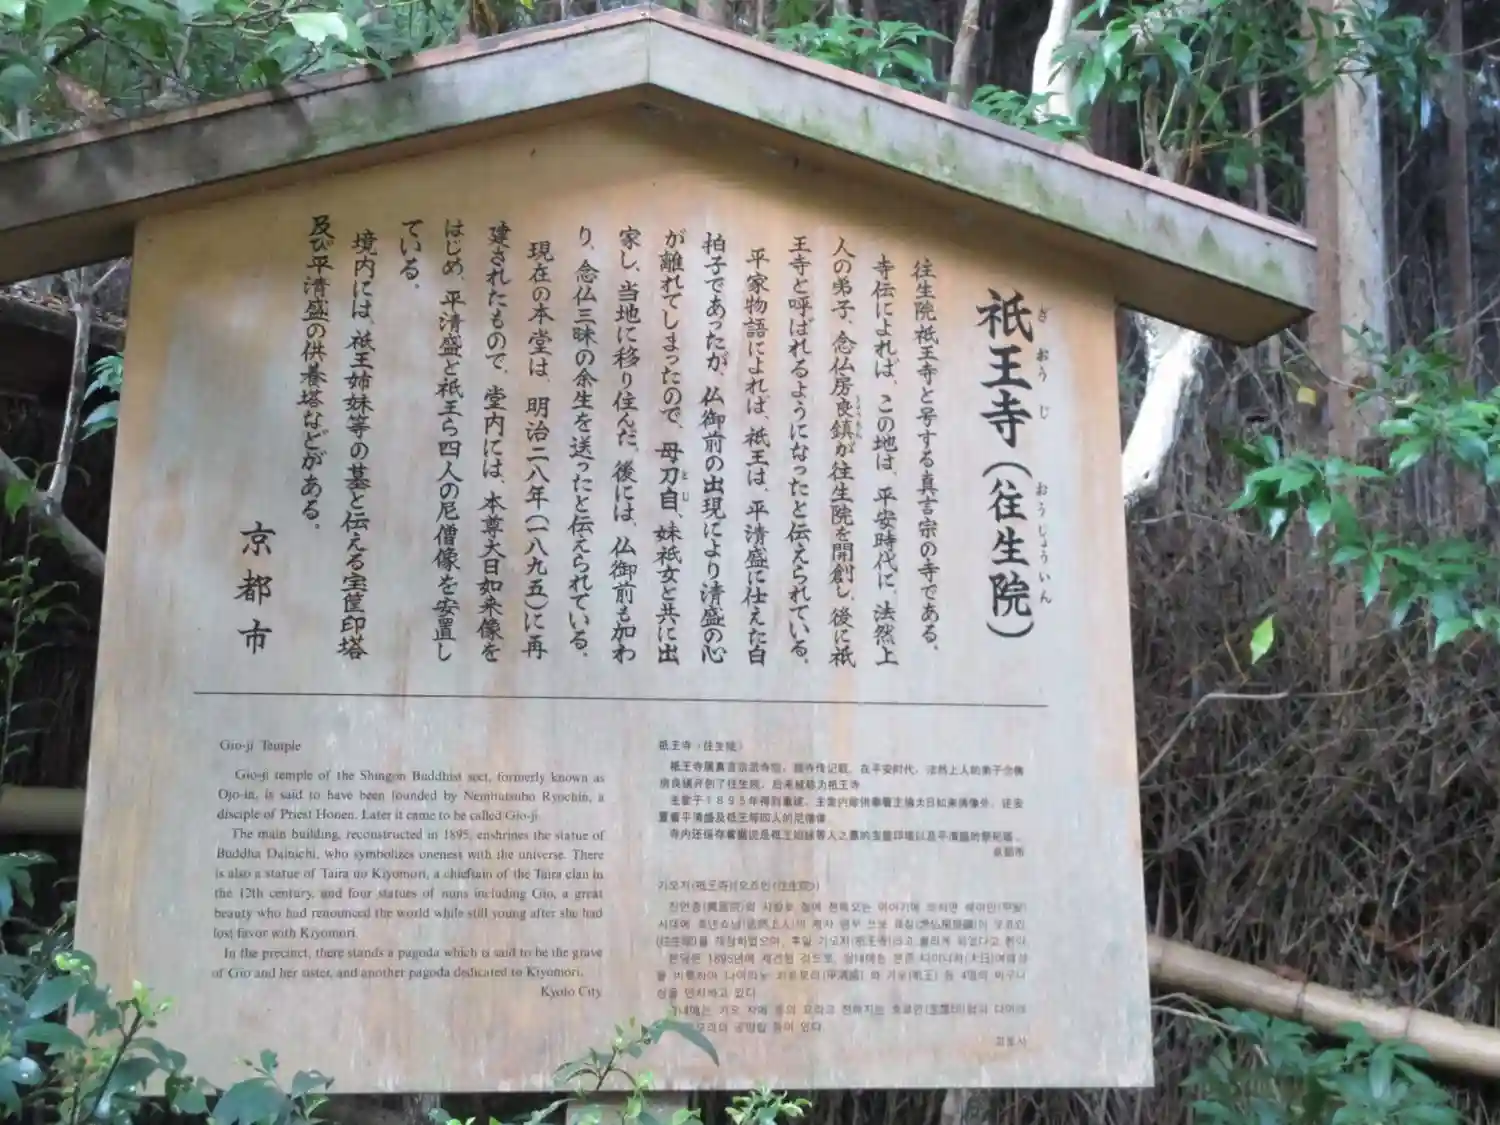 祇王寺(往生院)
ぎおうじ
おうじょういん
往生院祇王寺と号する真言宗の寺である。
寺伝によれば、この地は、平安時代に、法然上
人の弟子、念仏房良鎮が往生院を開創し、後に祇
りょうちん
王寺と呼ばれるようになったと伝えられている。
平家物語によれば、祇王は、平清盛に仕えた白
拍子であったが、仏御前の出現により清盛の心
が離れてしまったので、母刀自、妹祇女と共に出
とじ
家し、当地に移り住んだ。後には、仏御前も加わ
り、念仏三昧の余生を送ったと伝えられている。
現在の本堂は、明治二八年(一八九五)に再
建されたもので、堂内には、本尊大日如来像を
はじめ、平清盛と祇王ら四人の尼僧像を安置し
ている。
境内には、祇王姉妹等の墓と伝える宝筐印塔
及び平清盛の供養塔などがある。
京都市
Gio-ji Temple
Gio-ji temple of the Shingon Buddhist sect, formerly known as
Ojo-in, is said to have been founded by Nembutsubo Ryochin, a
disciple of Priest Honen. Later it came to be called Gio-ji
The main building, reconstructed in 1895, enshrines the statue of
Buddha Dainichi, who symbolizes oneness with the universe. There
is also a statue of Taira no Kiyomori, a chieftain of the Taira clan in
the 12th century, and four statues of nuns including Gio, a great
beauty who had renounced the world while still young after she had
lost favor with Kiyomori.
In the precinct, there stands a pagoda which is said to be the grave
of Gio and her sister, and another pagoda dedicated to Kiyomori.
Kyoto City
祇王寺(往生院)
祇王寺属真言宗派寺院。据寺传记载,在平安时代,法然上人的弟子念佛
房良镇开创了往生院,后来被称为祇王寺
主堂于1895年得到重建,主堂内除供奉着主佛大日如来佛像外,还安
置着平清盛及祇王等四人的尼僧像
寺内还保存着据说是祇王姐妹等人之墓的宝箧印塔以及平清盛的祭祀塔。
京都市
기오지(祇王寺)(오죠인(往生院))
시대에
본당은 1895년에 재건된 것으로,
상을 안치하고 있다
교토시